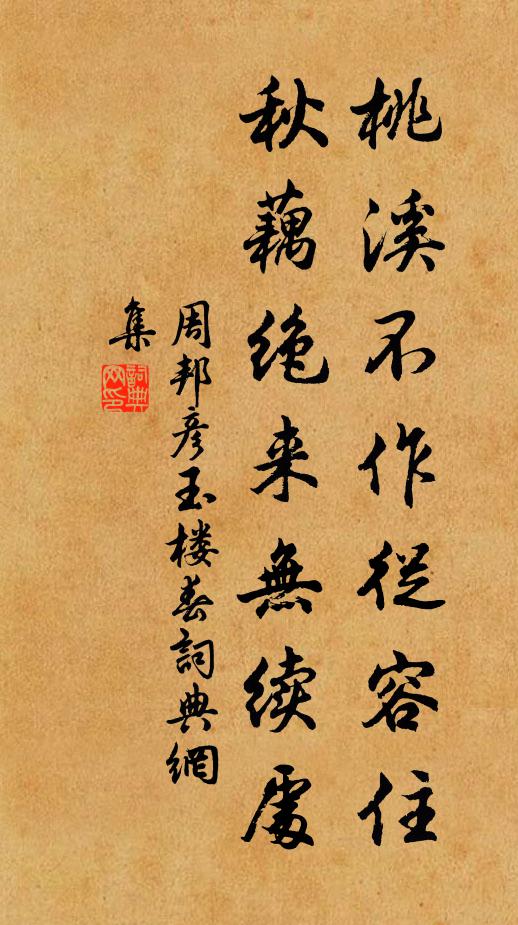 桃溪不作從容住
秋藕绝来無续處
周邦彦玉楼春詞典網
集
詞典
网印